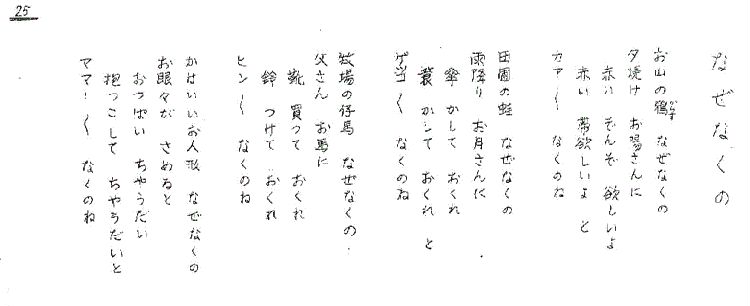 25
なぜなくの
お山の鴉 なぜなくの
夕焼け お陽さんに
赤い ぞんぞ 欲しいよ
赤い 帯欲しいよ と
カァー〱 なくのね
田圃の蛙 なぜなくの
雨降り お月さんに
傘 かして おくれ
蓑 かして おくれ と
ゲコ〱 なくのね
牧場の仔馬 なぜなくの
父さん お馬に
靴 買つて おくれ
鈴 つけて おくれ
ヒン〱 なくのね
かはいいお人形 なぜなくの
お眼々が さめると
おつぱい ちやうだい
抱つこして ちやうだいと
ママー〱 なくのね